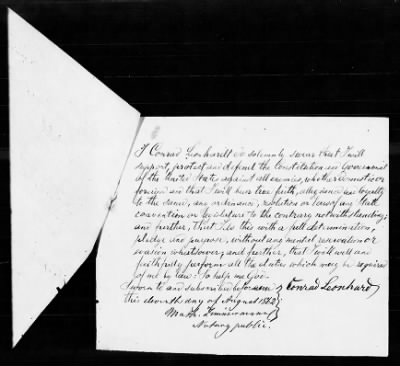 I Conrad Leonhardt do solemnly swear that I will
support, protect and defend the Constitution and Government
of the United States against all enemies, whether domestic or
foreign and that I will bear true faith, allegiance and loyalty
to the same, any ordinance, resolution or law of any State
convention or Legislature to the contrary notwithstanding;
and further, that I do this with a full determination,
pledge and purpose, without any mental reservation or
evasion whatsoever; and further, that I will well and
faithfully perform all the duties which may be required
of me by law. So help me God.
Sworn to and subscribed before me } Conrad Leonhard
this eleventh day of August 1862
Math. Zimmermann
Notary public.